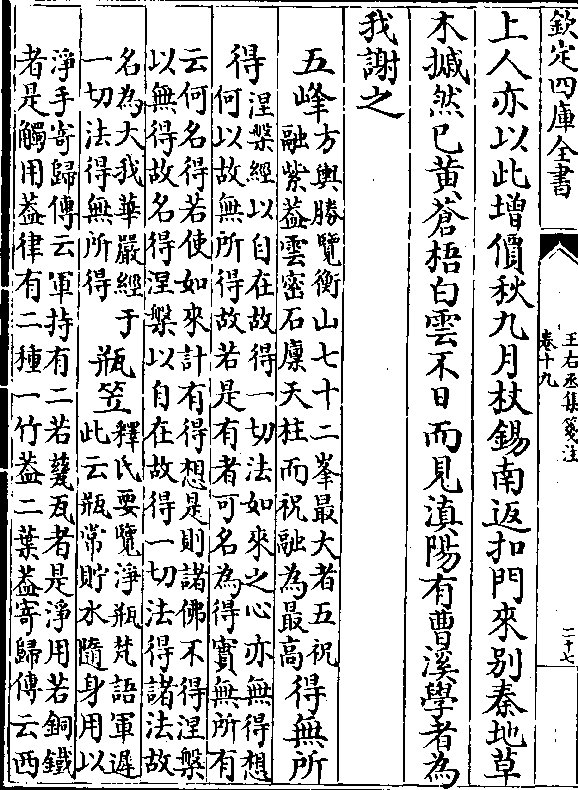 欽定四庫全書
王右丞集箋注
卷十九
二十七
上人亦以此增價秋九月杖錫南返扣門來别秦地草
木摵然已黄蒼梧白雲不日而見滇陽有曹溪學者為
我謝之
五峰方輿勝覽衡山七十二峯最大者五祝
融紫葢雲密石廪天柱而祝融為最高得無所
得涅槃經以自在故得一切法如來之心亦無得想
何以故無所得故若是有者可名為得實無所有
云何名得若使如來計有得想是則諸佛不得涅槃
以無得故名得涅槃以自在故得一切法得諸法故
名為大我華嚴經于
一切法得無所得
瓶笠釋氏要覽淨瓶梵語軍遲
此云瓶常貯水隨身用以
淨手寄歸傳云軍持有二若甆瓦者是淨用若銅鐵
者是觸用葢律有二種一竹葢二葉葢寄歸傳云西